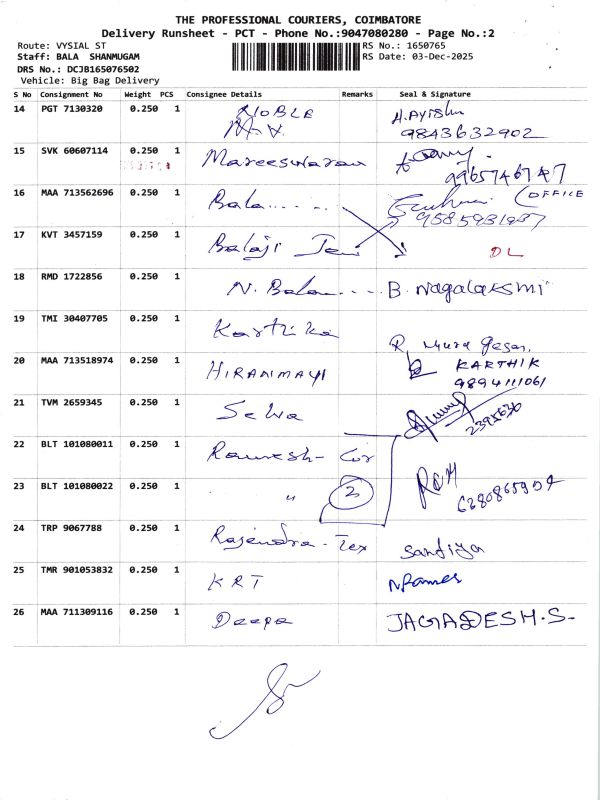 THE PROFESSIONAL COURIERS, COIMBATORE
Delivery Runsheet - PCT - Phone No.:9047080280 - Page No.:2
Route: VYSIAL ST
Staff: BALA SHANMUGAM
DRS No.: DCJB165076502
Vehicle: Big Bag Delivery
RS No.: 1650765
RS Date: 03-Dec-2025
S No Consignment No Weight PCS Consignee Details Remarks Seal & Signature
14 PGT 7130320 0.250 1 NOBLE H.Ayisha
M.V. 9843632902
15 SVK 60607114 0.250 1 Mareeswaran
9965746747
16 MAA 713562696 0.250 1 Bala (OFFICE
9585931937
17 KVT 3457159 0.250 1 Balaji DL
18 RMD 1722856 0.250 1 N. Bala.... B. Nagalakshmi
19 TMI 30407705 0.250 1 Karthika
R. Murugesan
20 MAA 713518974 0.250 1 HIRANMAYI KARTHIK
9894111061
21 TVM 2659345 0.250 1 Selva
22 BLT 101080011 0.250 1 Ramesh - Cir
23 BLT 101080022 0.250 1 " 2 RCM
6280865904
24 TRP 9067788 0.250 1 Rajendra - Tex Sandiya
25 TMR 901053832 0.250 1 KRT N Rames
26 MAA 711309116 0.250 1 Deepa JAGADEESH.S-